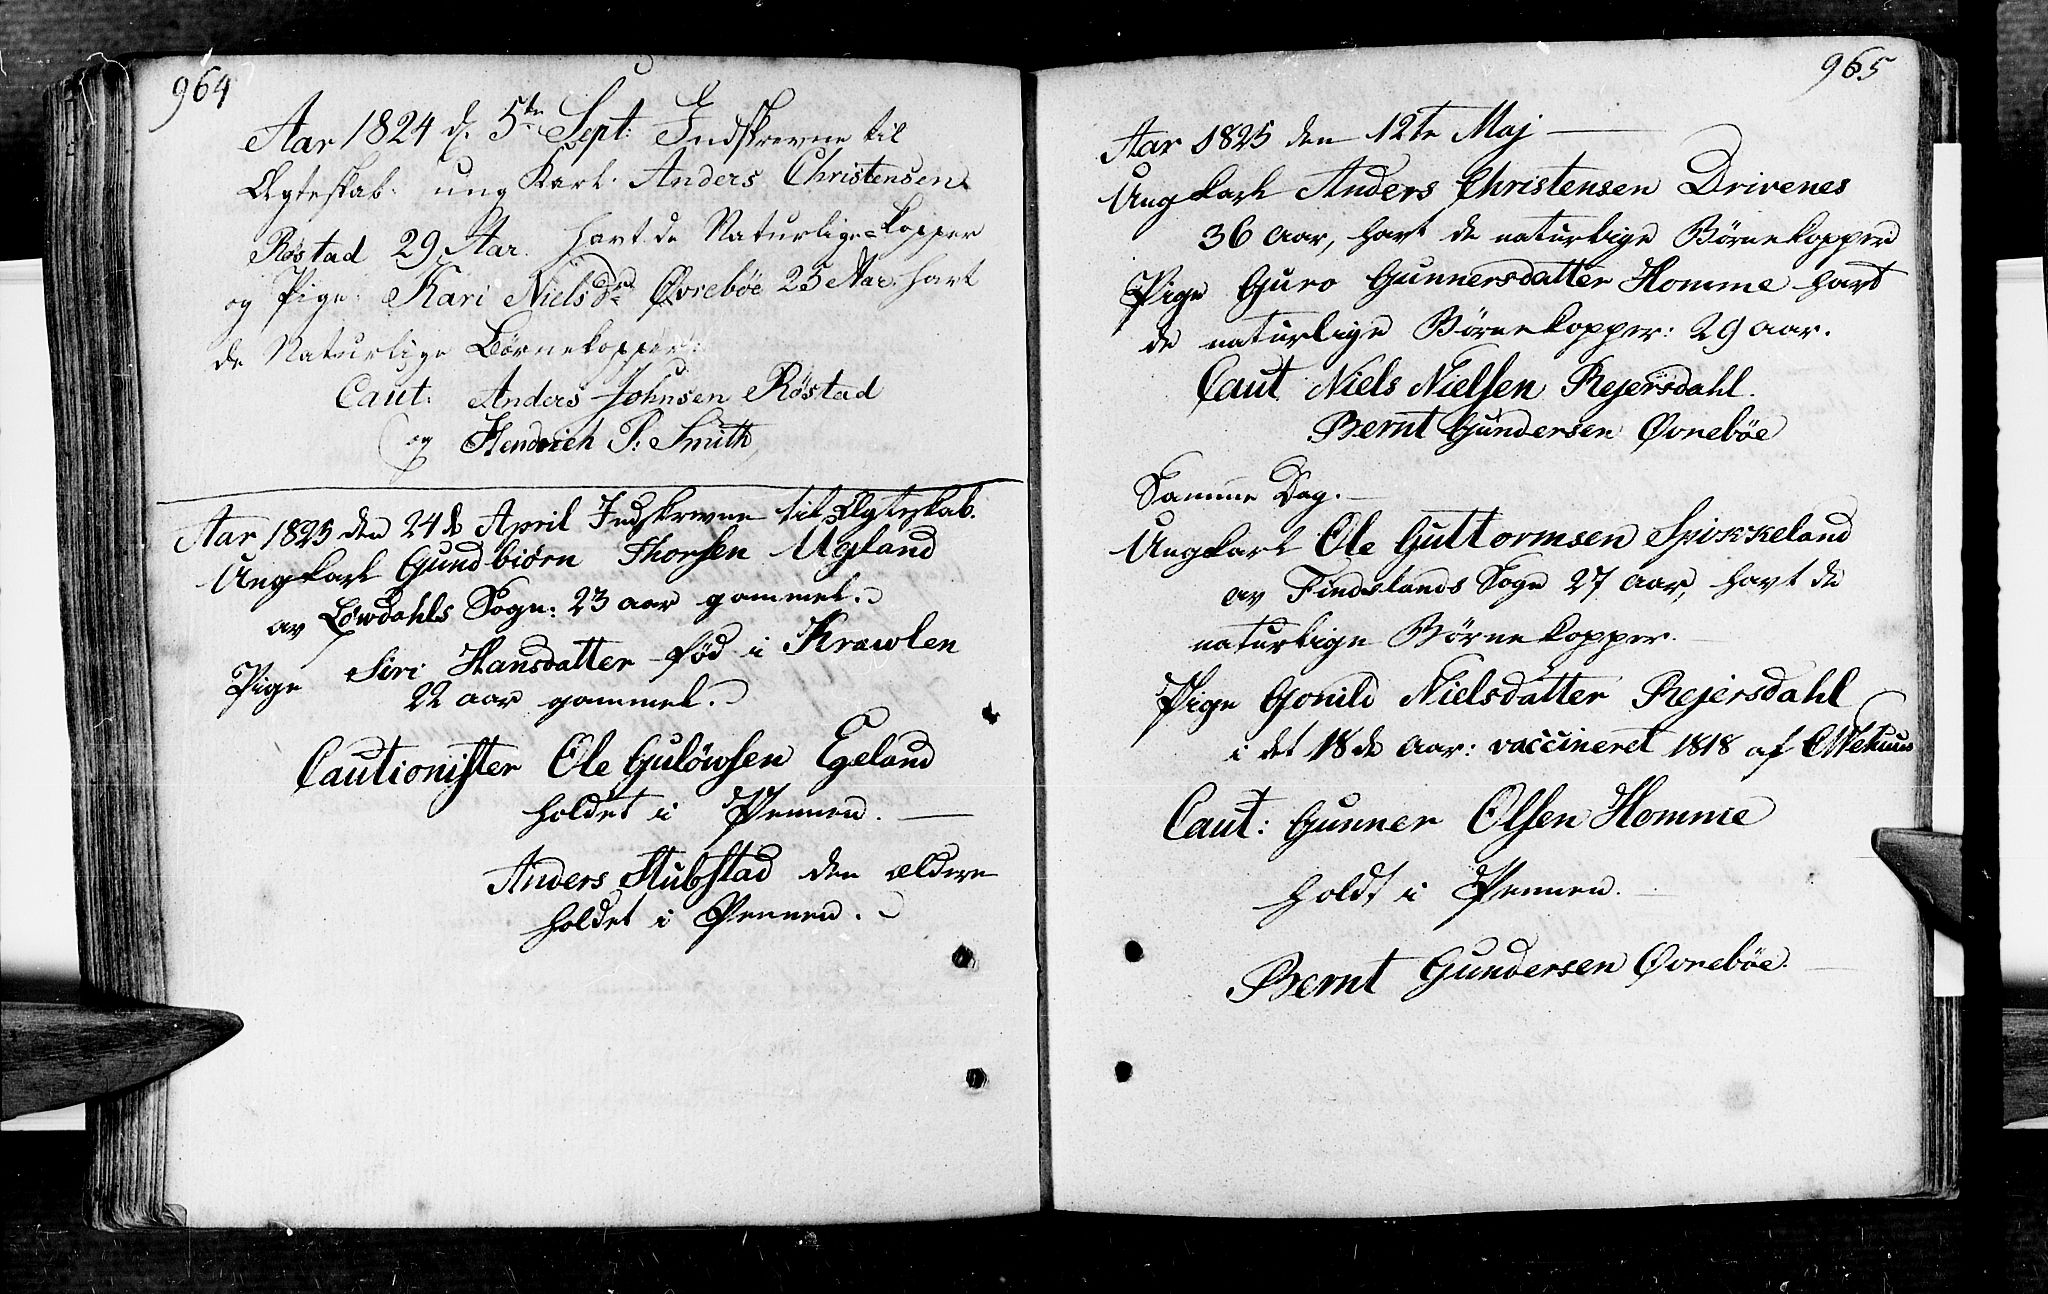 964
Aar 1824 d. 5te Sept: Indskrevne til
Ægteskab: ung Karl. Anders Christensen
Røstad 29 Aar. havt de Naturlige=Kopper
og Pige: Kari Nielsdr Øvrebøe 25 Aar. havt
de Naturlige Børnekopper:
Caut: Anders Johnsen Røstad
og Hendrich P: Smith
Aar 1825 den 24de April Indskrevne til Ægteskab.
Ungkarl Gundbiørn Thorsen Ugland
av Løwdahls Sogn: 23 aar gammel.
Pige Siri Hansdatter fød i Krawlen
22 aar gammel.
Cautionister Ole Guløwsen Egeland
holdet i Pennen.
Anders Stubstad den ældere
holdet i Pennen.
965
Aar 1825 den 12te Maj
Ungkarl Anders Christensen Drivenes
36 aar, havt de naturlige Børnekopper
Pige Guro Gunnersdatter Homme havt
de naturlige Børnekopper: 29 aar.
Caut Niels Nielsen Rejersdahl.
Bernt Gundersen Øvrebøe
Samme Dag.
Ungkarl Ole Guttormsen Spikkeland
av Findslands Sogn 27 aar, havt de
naturlige Børnekopper.
Pige Gonild Nielsdatter Rejersdahl
i det 18de aar: vaccineret 1818 af
Caut: Gunner Olsen Homme
holdt i Pennen.
Bernt Gundersen Øvrebøe.